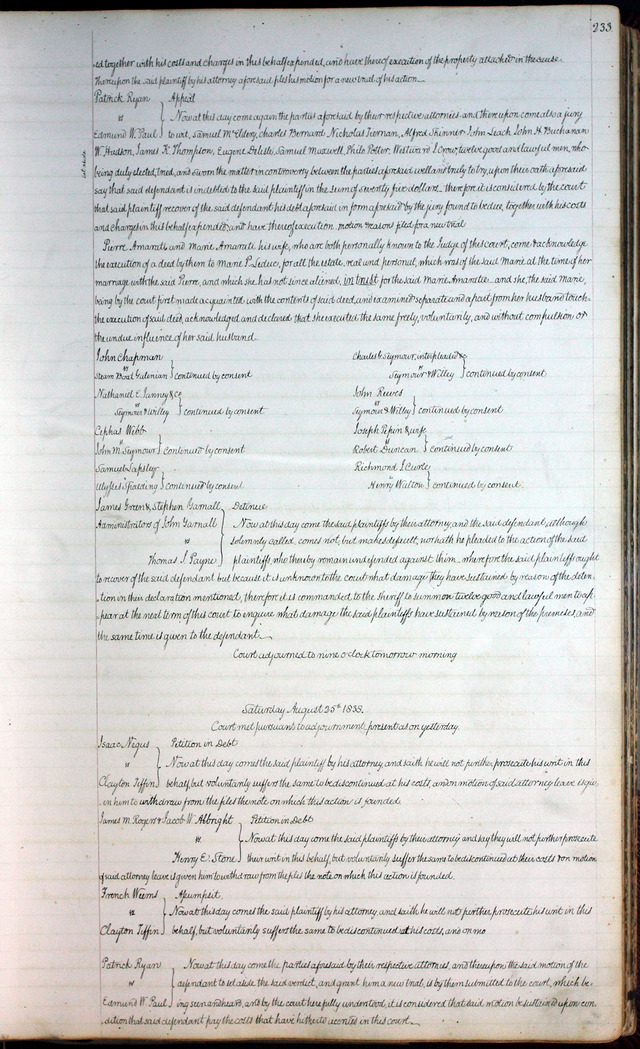 233
ed together with his costs and charges in this behalf expended, and have thereof execution of the property attached in the cause
Thereupon the said plaintiff by his attorney aforesaid files his motion for a new trial of his action
Patrick Ryan } Appeal
vs } Now at this day come again the parties aforesaid by their respective attornies and thereupon comes also a jury
Edmund W. Paul } to wit, Samuel McEldery, Charles Bernard, Nicholas Tiernan, Alfred Skinner John Leach John H. Buchanan
W. Hudson, James K. Thompson, Eugene Delisle, Samuel Maxwell, Philo Potter, Westward I Crow, twelve good and lawful men, who
being duly elected, tried, and sworn the matter in controversy between the parties aforesaid well and truly to try, upon their oath aforesaid
say that said defendant is indebted to the said plaintiff in the sum of seventy five dollars, therefore it is considered by the court
that said plaintiff recover of the said defendant his debt aforesaid in form aforesaid by the jury found to be due, together with his costs
and charges in this behalf expended and have thereof execution. motion reasons filed for a new trial
Pierre and Marie his wife, who are both personally known to the Judge of this court, come & acknowledge
the execution of a deed by them to Marie P. Leduc, for all the estate, real and personal, which was of the said Marie at the time of her
marriage with the said Pierre, and which she has not since aliened, in trust for the said Marie and she, the said Marie,
being by the court first made acquainted with the contents of said deed, and examined separate and apart from her husband touch
the execution of said deed, acknowledged and declared that she executed the same freely, voluntarily, and without compulsion or
the undue influence of her said husband
John Chapman
vs
Steam Boat Galenian } continued by consent
Charles G Seymour, interpleader &c
vs
Seymour & Willey } continued by consent
Nathaniel E. Janney & Co
vs
Seymour & Willey } continued by consent
John Reeves
vs
Seymour & Willey } continued by consent
Cephas Webb
vs
John M. Seymour } continued by consent
Joseph Pepin & wife
vs
Robert Duncan } continued by consent
Samuel Lapsley
vs
Ulysses Spalding } continued by consent
Richmond I Curle
vs
Henry Walton } continued by consent
James Green & Stephen Garnall } Detinue
Administrators of John Garnall } Now at this day come the said plaintiffs by their attorney, and the said defendant, although
vs } solemnly called, comes not, but makes default, nor hath he pleaded to the action of the said
Thomas I. Payne } plaintiffs, who thereby remain undefended against them, wherefore the said plaintiffs ought
to recover of the said defendant but because it is unknown to the court what damage they have sustained by reason of the deten
tion in their declaration mentioned, therefore it is commanded to the sheriff to summon twelve good and lawful men to ap
pear at the next term of this court to enquire what damage the said plaintiffs have sustained by reason of the premises, and
the same time is given to the defendant.
Court adjourned to nine o'clock tomorrow morning
Saturday August 25th 1838.
Court met pursuant to adjournment, present as on yesterday.
Isaac Negus } Petition in Debt
vs } Now at this day comes the said plaintiff by his attorney, and saith he will not further prosecute his writ in this
Clayton Tiffin } behalf, but voluntarily suffers the same to be discontinued at his costs, and on motion of said attorney leave is giv
en him to withdraw from the files the note on which this action is founded
James M. Rogers & Jacob W. Albright } Petition in Debt
vs } Now at this day come the said plaintiffs by their attorney and say they will not further prosecute
Henry E. Stone } their writ in this behalf, but voluntarily suffer the same to be discontinued at their costs & on motion
of said attorney leave is given him to withdraw from the files the note on which this action is founded.
French Weems } Assumpsit
vs } Now at this day comes the said plaintiff by his attorney, and saith he will not further prosecute his writ in this
Clayton Tiffin } behalf, but voluntarily suffers the same to be discontinued at his costs, and on mo
Patrick Ryan } Now at this day come the parties aforesaid by their respective attornies, and thereupon the said motion of the
vs } defendant to set aside the said verdict, and grant him a new trial, is by them submitted to the court, which be
Edmund W. Paul } ing seen and heard, and by the court here fully understood, it is considered that said motion be sustained upon con
dition that said defendant pay the costs that have hitherto accrued in this court.